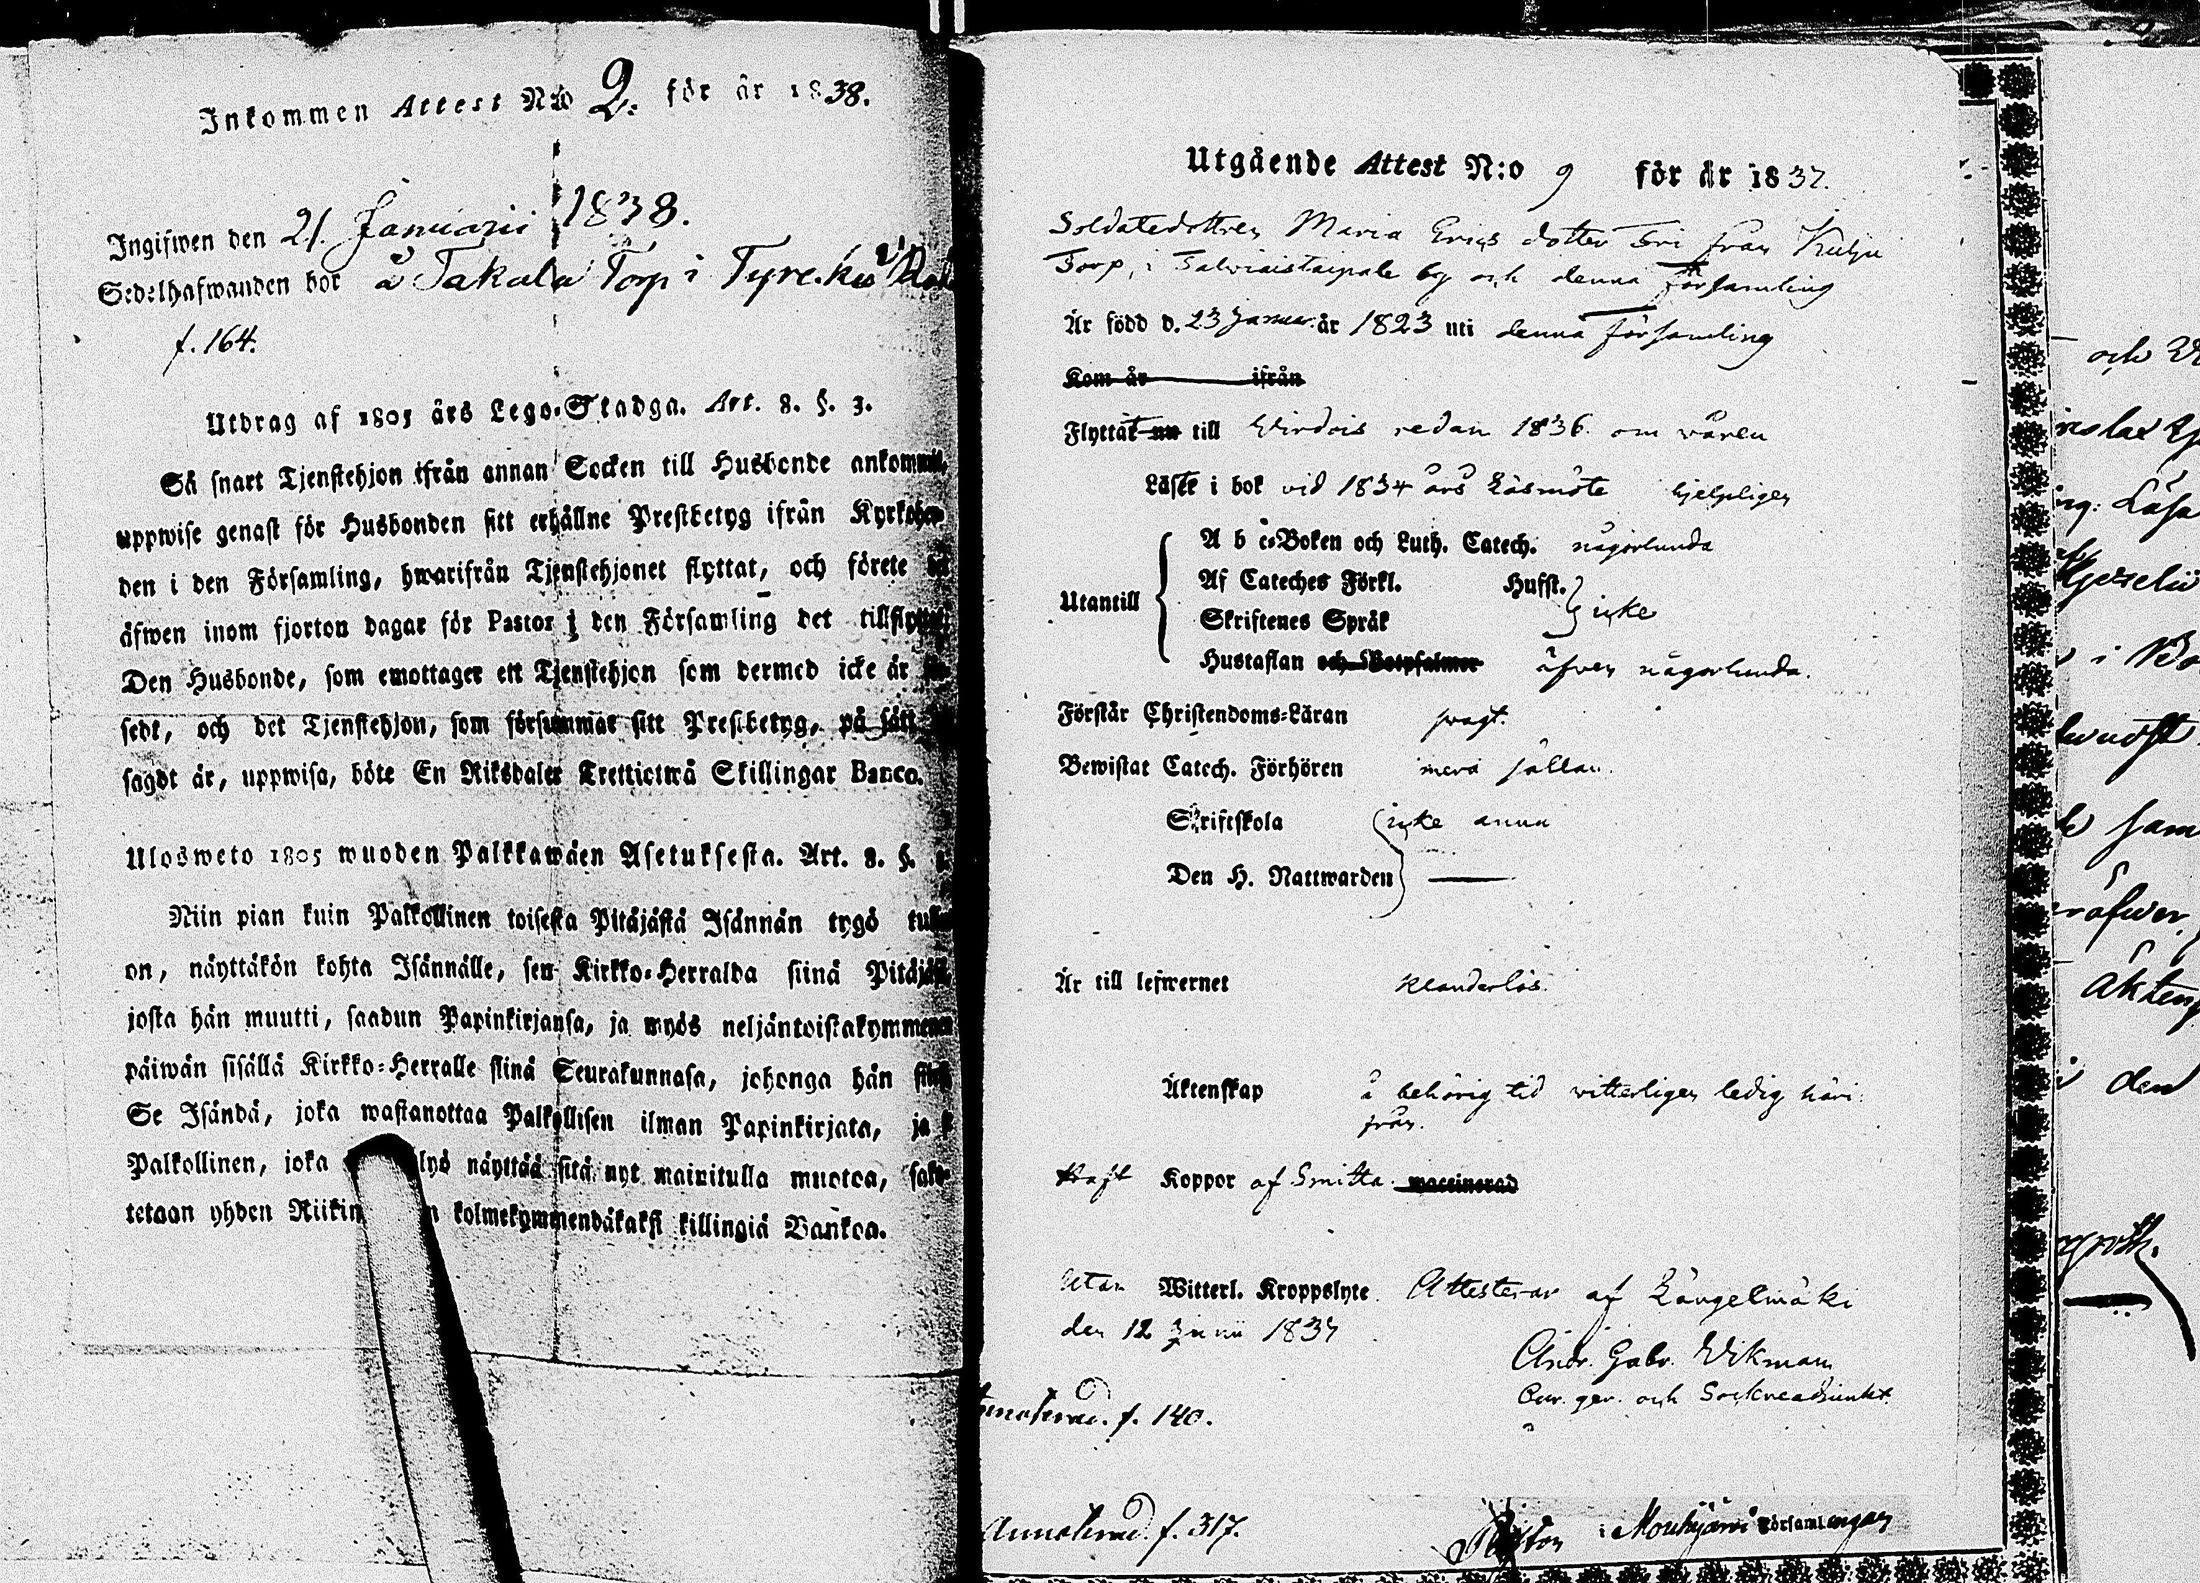 Inkommen Attest N:o 2. för år 1838.
Ingifwen den 21. Januarii 1838.
Sedelhafwanden bor å Takala Torp i Tyrckö
f. 164.
Utdrag af 1805 års Lego-Stadga. Art. 8. §. 3.
Så snart Tjenstehjon ifrån annan Socken till Husbonde ankommit,
uppwise genast för Husbonden sitt erhållne Prestbetyg ifrån Kyrkoher-
den i den Församling, hwarifrån Tjenstehjonet flyttat, och förete
äfwen inom fjorton dagar för Pastor i den Församling det
Den Husbonde, som emottager ett Tjenstehjon som dermed icke är
sedt, och det Tjenstehjon, som försummar sitt Prestbetyg, på sätt
sagdt är, uppwisa, böte En Riksdaler Trettiotwå Skillingar Banco.
Ulosweto 1805 wuoden Palkkawäen Asetuksesta. Art. 8. §.
Niin pian kuin Palkollinen toisesta Pitäjästä Isännän tygö
on, näyttäkön kohta Isännälle, sen Kirkko-Herralda siinä
josta hän muutti, saadun Papinkirjansa, ja myös neljäntoistakymmenen
päiwän sisällä Kirkko-Herralle siinä Seurakunnasa, johonga hän
Se Isändä, joka wastanottaa Palkollisen ilman Papinkirjata, ja
Palkollinen, joka lyö näyttää sitä nyt mainitulla muotoa,
tetaan yhden Riikin kolmekymmendäkaksi killingiä Bankoa.
Utgående Attest N:o 9 för år 1837.
Soldatedottren Maria Erics dotter Fri från Kulju
Torp, i Talviaistaipale by och denna församling
Är född d. 23 Januar. år 1823 uti denna församling
Kom år ifrån
Flyttat nu till Virdois redan 1836 om våren
Läste i bok vid 1834 års Läsmöte hjelpligen
A b c-Boken och Luth. Catech. någorlunda
Af Cateches Förkl. Hufst.
Utantill
Skriftenes Språk icke
Hustaflan och Botpsalmer äfven någorlunda.
Förstår Christendoms-Läran svagt.
Bewistat Catech. Förhören mera sällan.
Skriftskola icke ännu
Den H. Nattwarden
Är till lefwernet klanderlös.
Äktenskap å behörig tid vitterligen ledig häri-
från.
Haft Koppor af Smitta. waccinerad
Utan Witterl. Kroppslyte. Attesterar af Längelmäki
den 12 Junii 1837
Andr. Gabr. Wikman
Cur. ger. och Sockneadjunkt.
f. 140.
Annoterad. f. 317.
Pastor i Mouhijärvi Församlingen
och
Läsa
i
den